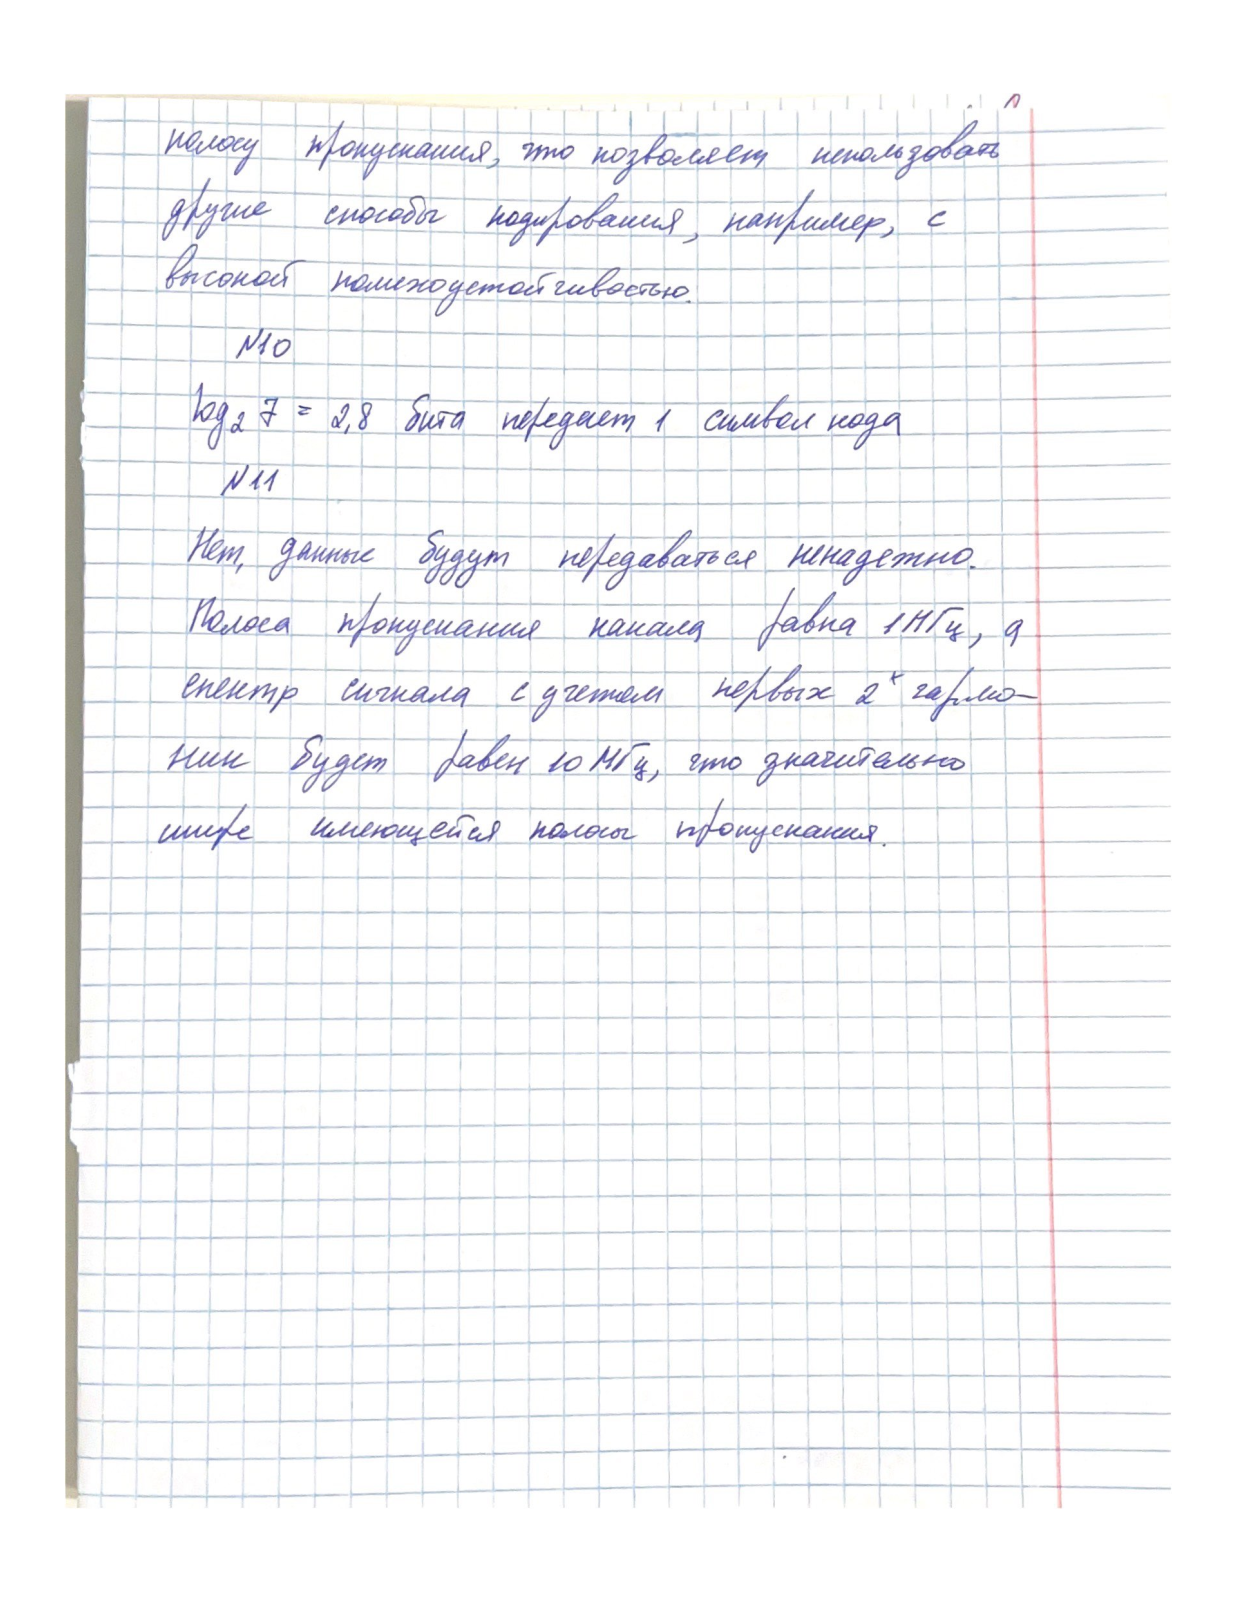 полосу пропускания, что позволяет использовать
другие способы кодирования, например, с
высокой помехоустойчивостью.
№10
log₂ 7 = 2,8 бита передает 1 символ кода
№11
Нет, данные будут передаваться ненадежно.
Полоса пропускания канала равна 1 МГц, а
спектр сигнала с учетом первых 2ˣ гармо-
ник будет равен 10 МГц, что значительно
шире имеющейся полосы пропускания.